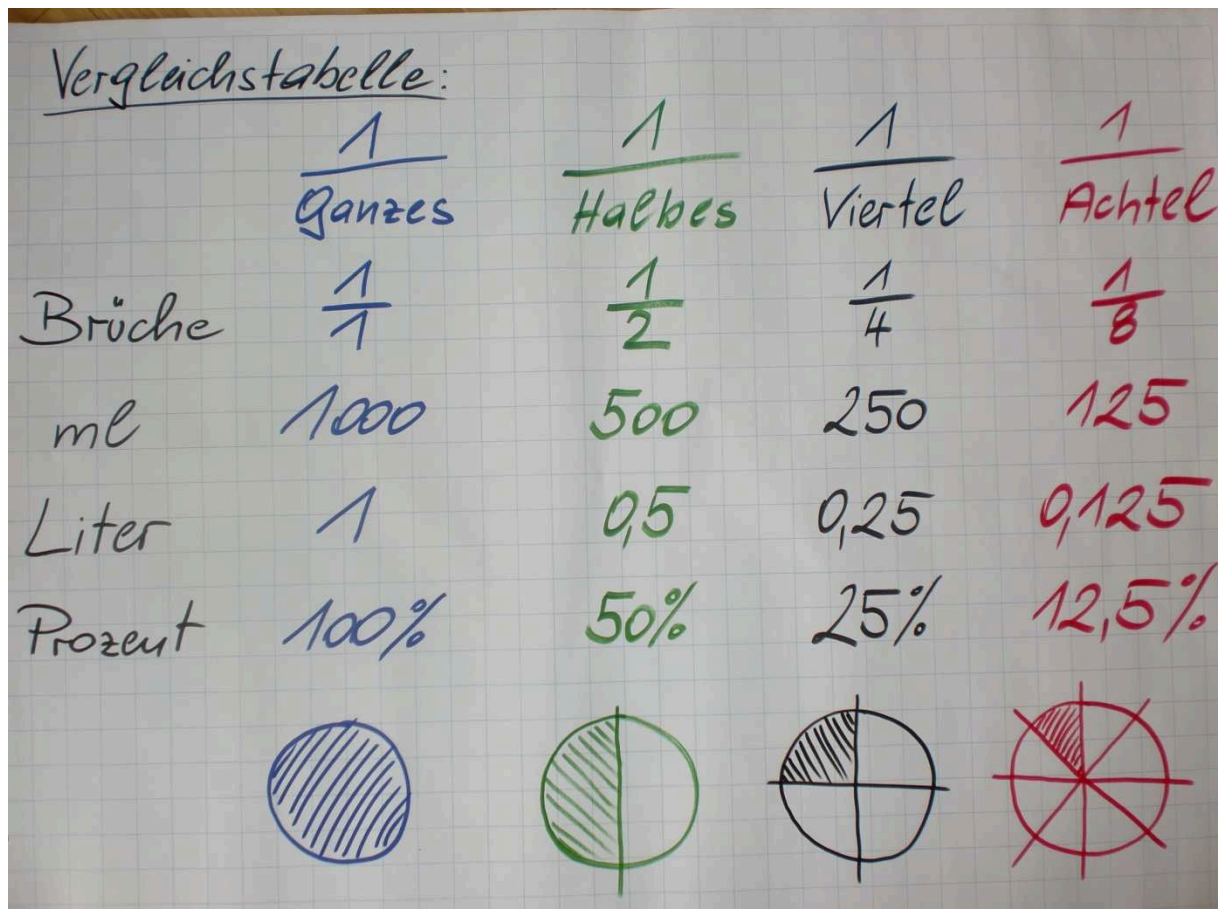 Vergleichstabelle:
1 1 1 1
Ganzes Halbes Viertel Achtel
Brüche 1/1 1/2 1/4 1/8
ml 1000 500 250 125
Liter 1 0,5 0,25 0,125
Prozent 100% 50% 25% 12,5%